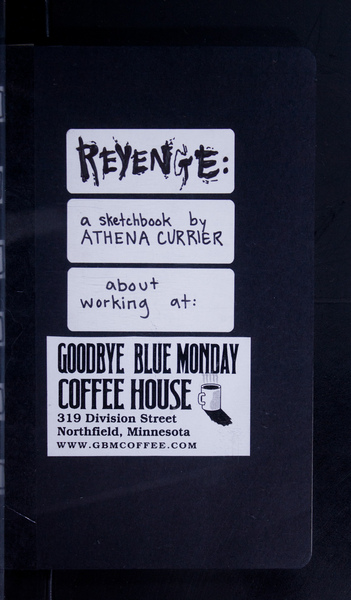 REVENGE:
a sketchbook by
ATHENA CURRIER
about
working at:
GOODBYE BLUE MONDAY
COFFEE HOUSE
319 Division Street
Northfield, Minnesota
WWW.GBMCOFFEE.COM